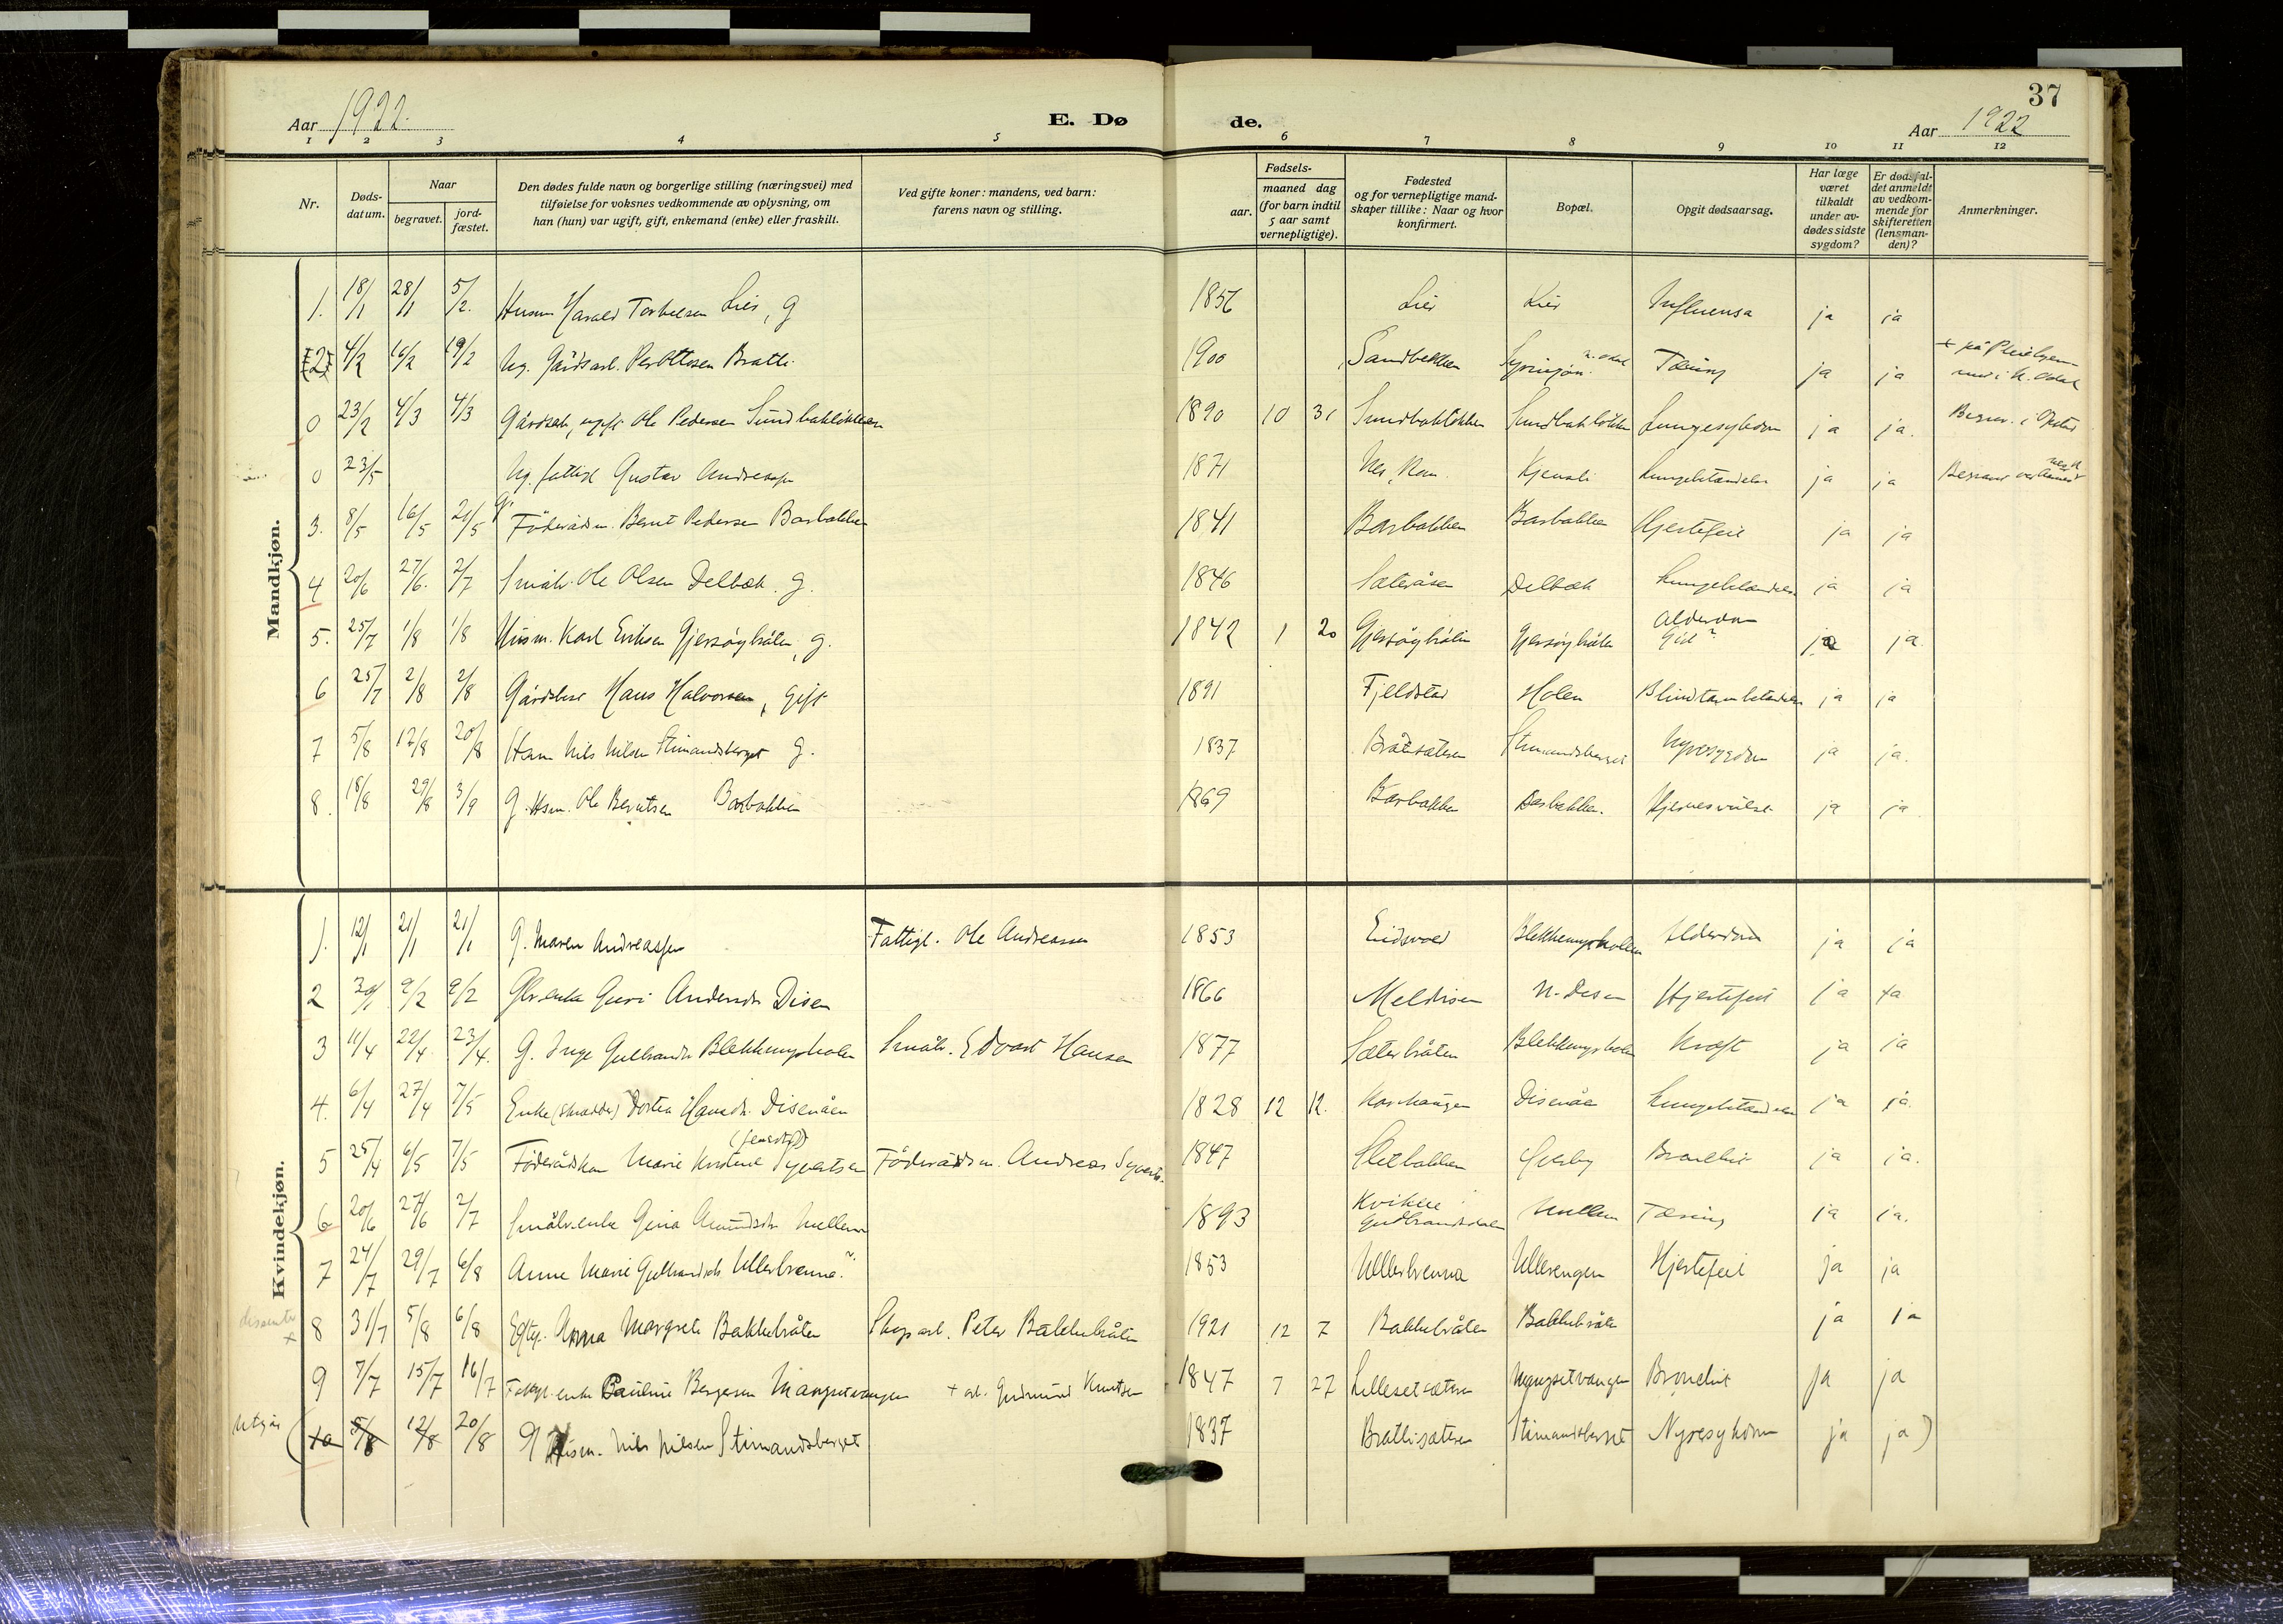 37
Aar 1922. E. Døde. Aar 1922
1 2 3 4 5 6 7 8 9 10 11 12
Nr. Døds-datum. Naar begravet. jord-fæstet. Den dødes fulde navn og borgerlige stilling (næringsvei) med tilføielse for voksnes vedkommende av oplysning, om han (hun) var ugift, gift, enkemand (enke) eller fraskilt. Ved gifte koner: mandens, ved barn: farens navn og stilling. Fødsels- aar. maaned dag (for barn indtil 5 aar samt vernepligtige). Fødested og for vernepligtige mand-skaper tillike: Naar og hvor konfirmert. Bopæl. Opgit dødsaarsag. Har læge været tilkaldt under av-dødes sidste sygdom? Er dødsfal-det anmeldt av vedkom-mende for skifteretten (lensman-den)? Anmerkninger.
Mandkjøn.
1. 18/1 28/1 5/2. Husm Harald Torkelsen Lier, g 1856 Lier Lier Influensa ja ja
2 4/2 16/2 19/2 Ug. Gårdsarb. Per Ottosen Bratli. 1900 Sandbekken n. odal Tæring ja ja + på
0 23/2 4/3 4/3 Gårdsarb, ugift Ole Pedersen Sundbakløkken 1890 10 31 Sundbakløkken Sundbakløkken Lungesykdom ja ja. Begrav. i Opstad
0 23/5 Ug. fattigl Gustav Andreassen 1871 Nes, Rom. Kjensli Lungebetændelse ja ja Begravet ved
3. 8/5 16/5 21/5 g. Føderådsm. Bernt Pedersen Barbakken 1841 Barbakken Barbakken Hjertefeil ja ja
4 20/6 27/6. 2/7 Småbr. Ole Olsen Delbæk. g. 1846 Sæteråsen Delbæk Lungebetændelse ja ja
5. 25/7 1/8 1/8 Husm. Karl Eriksen Gjersøyhålen, g. 1842 1 20 Gjersøyhålen Gjersøyhålen Alderdom Gid? ja ja
6 25/7 2/8 2/8 Gårdbr Hans Halvorsen, gift 1891 Fjeldstad Holen Blindtarmbetændelse ja ja
7 5/8 12/8 20/8 Hsm Nils Nilsen Stimandsberget g. 1837 Bratlisæteren Stimandsberget Nyresygdom ja ja.
8. 18/8 29/8 3/9 G. Hsm. Ole Berntsen Barbakken 1869 Barbakken Barbakken. Hjernesvulst ja ja
Kvindekjøn.
1. 12/1 21/1 21/1 G. Maren Andreassen Fattigl. Ole Andreassen 1853 Eidsvold Blekkemyrholen Alderdom ja ja
2 30/1 9/2 9/2 Gbr.enke Guri Andersdr Disen 1866 Meldisen N. Disen Hjertefeil ja ja
3 11/4 22/4 23/4. G. Inge Gulbrandsdr Blekkemyrholen Småbr. Edvart Hansen 1877 Sæterbråten Blekkemyrholen Kræft ja ja
4. 6/4 27/4 7/5 Enke (skrædder) Dortea Hansdr. Disenåen 1828 12 12. Korshaugen Disenåen Lungebetændelse ja ja.
5 25/4 6/5 7/5 Føderådskone Marie Kirstine Syvertsen Føderådsm. Andreas Syverts. 1847 Sletbakken Bronchit ja ja.
6 20/6 27/6 2/7 Småbr.enke Gina Amundsdr Mellem 1893 Kvikne Gudbrandsdalen Mellem Tæring ja ja.
7 24/7 29/7 6/8 Anne Marie Gulbrandsdr Ullerbrenna. 1853 Ullerbrenna Ullerengen Hjertefeil ja ja
dissenter × 8 31/7 5/8 6/8 Anna Margrete Bakkebråten Skogsarb. Peter Bakkebråten 1921 12 7 Bakkebråten Bakkebråten ja ja
9 7/7 15/7 16/7 Fattigl. enke Pauline Bergersen Mangsetvangen + arb. Gudmund Knutsen 1847 7 27 Lillesetsæteren Mangsetvangen Bronchit ja ja
Utgår ( 10 5/8 12/8 20/8 G Husm. Nils Nilsen Stimandsberget 1837 Bratlisæteren Stimandsberget Nyresykdom ja ja )